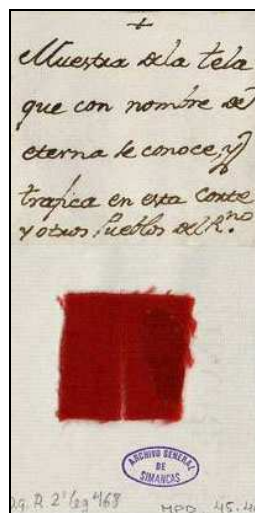 +
Muestra dela tela
que con nombre de
eterna se conoce, y
trafica en esta Corte
y otros Pueblos del R.no
ARCHIVO GENERAL
DE
SIMANCAS
D.G.R. 2ª leg 468
MPD 45.4